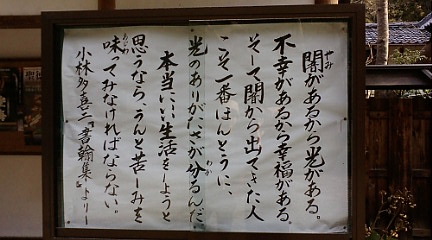 闇があるから光がある。
不幸があるから幸福がある。
そして闇から出てきた人
こそ一番ほんとうに、
光のありがたさが分るんだ。
本当にいい生活をしようと
思うなら、うんと苦しみを
味ってみなければならない。
小林多喜二「書翰集」より